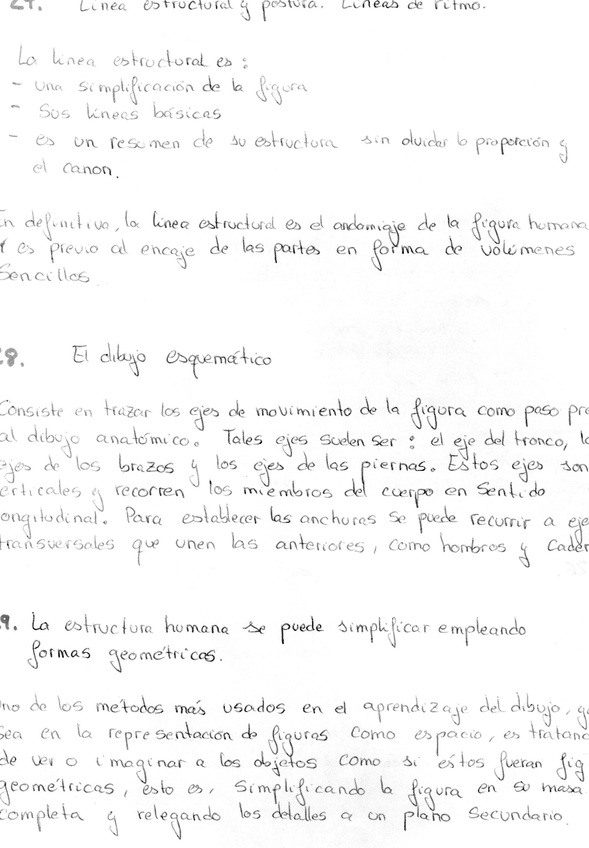 27. Línea estructural y postura. Líneas de ritmo.
La línea estructural es:
- una simplificación de la figura
- Sus líneas básicas
- es un resumen de su estructura sin olvidar la proporción y
el canon.
En definitiva, la línea estructural es el andamiaje de la figura humana
Y es previo al encaje de las partes en forma de volúmenes
Sencillos
28. El dibujo esquemático
Consiste en trazar los ejes de movimiento de la figura como paso pre
al dibujo anatómico. Tales ejes suelen ser: el eje del tronco, lo
ejes de los brazos y los ejes de las piernas. Estos ejes son
erticales y recorren los miembros del cuerpo en sentido
ongitudinal. Para establecer las anchuras se puede recurrir a eje
transversales que unen las anteriores, como hombros y cader
9. La estructura humana se puede simplificar empleando
formas geométricas.
no de los métodos más usados en el aprendizaje del dibujo, ya
sea en la representación de figuras como espacio, es tratand
de ver o imaginar a los objetos como si éstos fueran fig
geométricas, esto es, simplificando la figura en su masa
completa y relegando los detalles a un plano secundario.